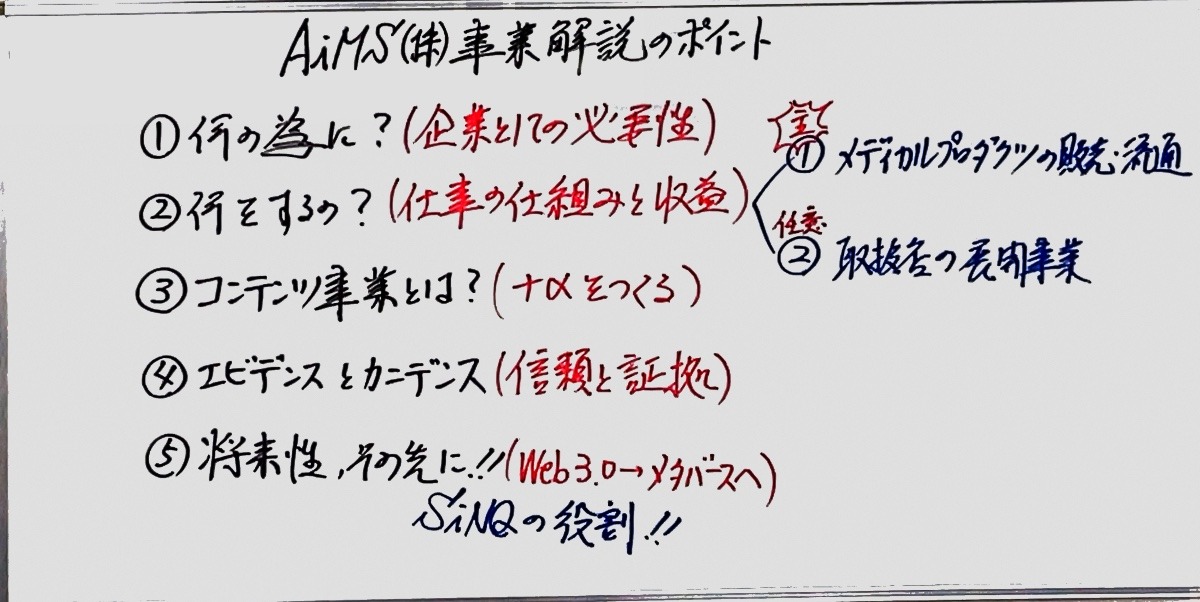 AiMS(株)事業解説のポイント
①何の為に?(企業としての必要性)
②何をするの?(仕事の仕組みと収益)
主
① メディカルプロダクツの販売・流通
任意
② 取扱店の展開事業
③コンテンツ事業とは?(+αをつくる)
④エビデンスとカニデンス(信頼と証拠)
⑤将来性,その先に!!(Web3.0→メタバースへ)
SiNQの役割!!